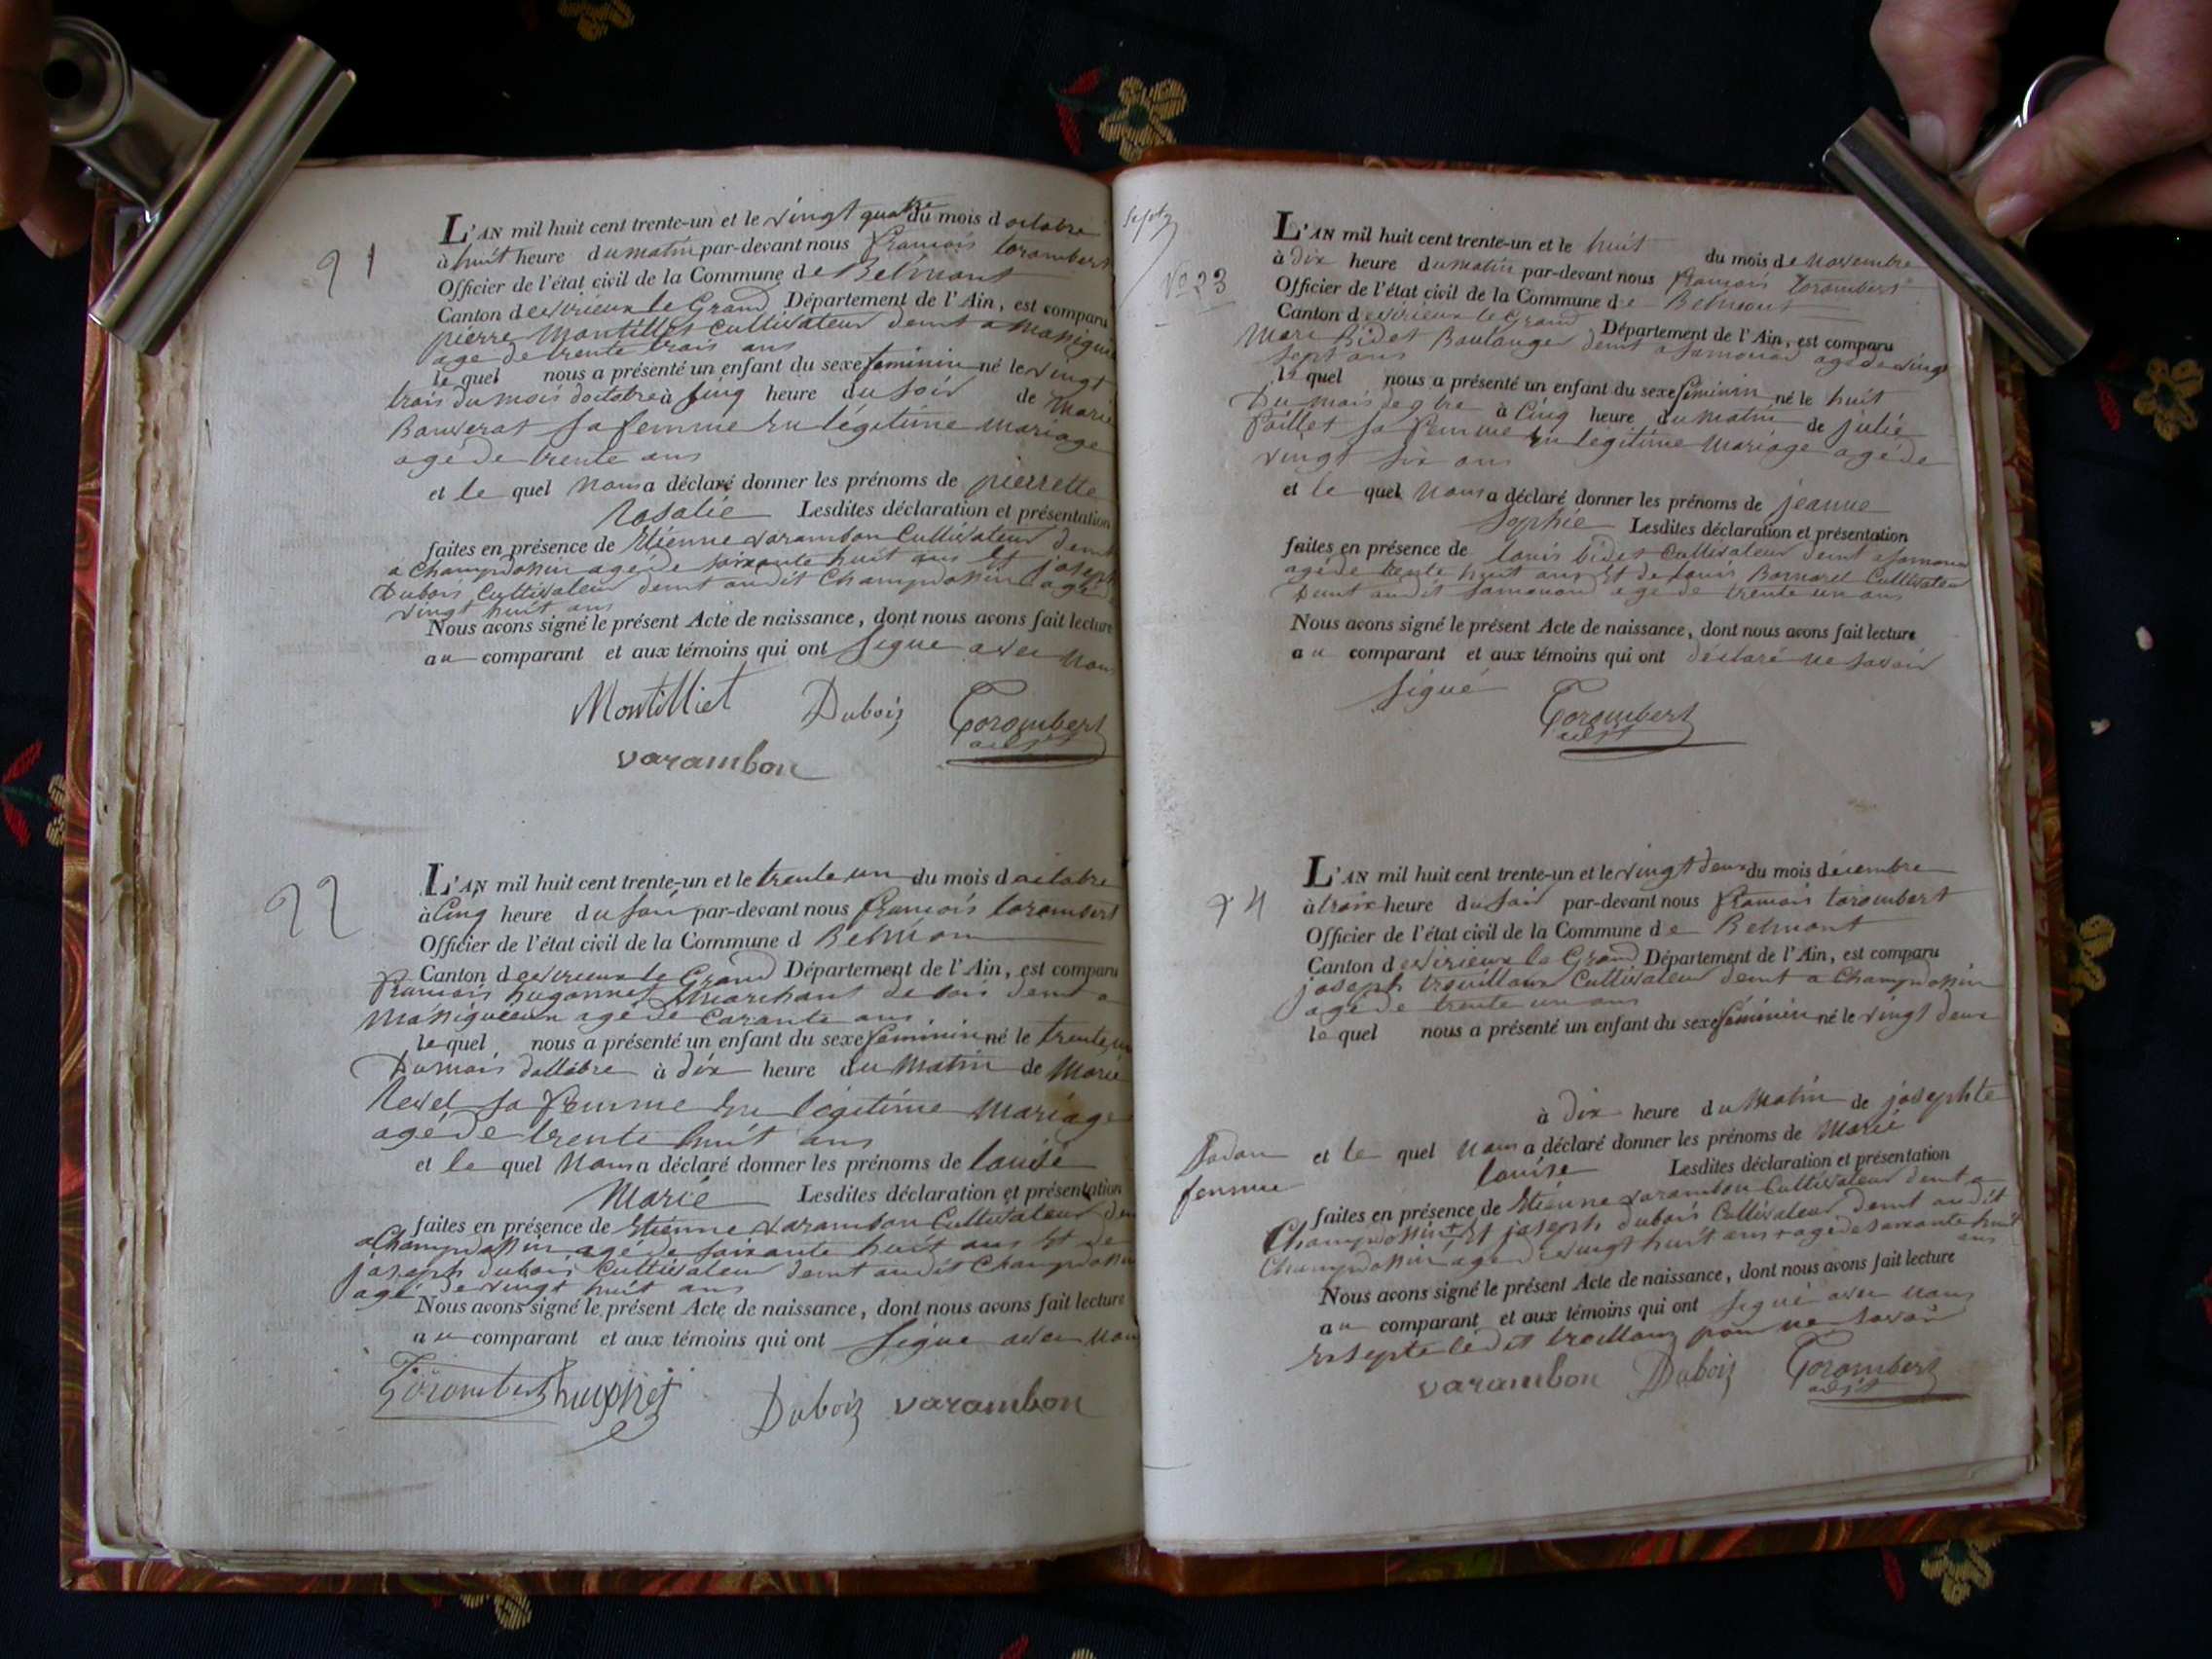 21
L'AN mil huit cent trente-un et le vingt quatre du mois d octobre
à huit heure du matin par-devant nous francois torombert
Officier de l'état civil de la Commune de Belmont
Canton de virieux le Grand Département de l'Ain, est comparu
pierre Montilliet cultivateur demt a
age de trente trois ans
le quel nous a présenté un enfant du sexe feminin né le vingt
trois du mois doctobre à sinq heure du soir de Marie
sa femme En légitime mariage
agé de trente ans
et le quel Nous a déclaré donner les prénoms de pierrette
Rosalie Lesdites déclaration et présentation
faites en présence de Etienne varambon Cultivateur demt
a Champdossin agé de soixante huit ans Et joseph
Dubois Cultivateur demt audit Champdossin agé
vingt huit ans
Nous avons signé le présent Acte de naissance, dont nous avons fait lecture
au comparant et aux témoins qui ont signe avec nous
Montilliet Dubois Torombert
adjt
varambon
22
L'AN mil huit cent trente-un et le trente un du mois d octobre
à Cinq heure du soir par-devant nous francois torombert
Officier de l'état civil de la Commune d Belmon
Canton de virieux le Grand Département de l'Ain, est comparu
francois hugonnet Marchant de bois demt a
agé de Carante ans
le quel nous a présenté un enfant du sexe feminin né le trente un
Du mois dottobre à dix heure du Matin de Marie
Revel sa femme En légitime Mariage
agé de trente huit ans
et le quel Nous a déclaré donner les prénoms de louise
Marie Lesdites déclaration et présentation
faites en présence de Etienne varambon Cultivateur dem
a Champdossin agé de soixante huit ans Et de
joseph dubois Cultivateur demt audit Champdossin
agé de vingt huit ans
Nous avons signé le présent Acte de naissance, dont nous avons fait lecture
au comparant et aux témoins qui ont signe avec nous
Torombert Dubois varambon
No 23
L'AN mil huit cent trente-un et le huit du mois de Novembre
à dix heure du matin par-devant nous francois torombert
Officier de l'état civil de la Commune de Belmont
Canton de virieux le Grand Département de l'Ain, est comparu
Marc Bidet Boulanger demt a samonod agé de vingt
sept ans
le quel nous a présenté un enfant du sexe féminin né le huit
Du mois de 9bre à Cinq heure du matin de julie
sa femme En legitime Mariage agé de
vingt six ans
et le quel Nous a déclaré donner les prénoms de jeanne
sophie Lesdites déclaration et présentation
faites en présence de louis bidet Cultivateur demt a samonod
agé de trente huit ans Et de louis Bornarel Cultivateur
Demt audit samonod agé de trente un ans
Nous avons signé le présent Acte de naissance, dont nous avons fait lecture
au comparant et aux témoins qui ont déclaré ne savoir
signé Torombert
adjt
24
L'AN mil huit cent trente-un et le vingt deux du mois décembre
à troix heure du soir par-devant nous francois torombert
Officier de l'état civil de la Commune de Belmont
Canton de virieux le Grand Département de l'Ain, est comparu
joseph trouilloux Cultivateur demt a Champdossin
agé de trente un ans
le quel nous a présenté un enfant du sexe féminin né le vingt deux
à dix heure du Matin de josephte
femme
et le quel Nous a déclaré donner les prénoms de Marie
louise Lesdites déclaration et présentation
faites en présence de Etienne varambon Cultivateur demt a
Champdossin + Et joseph dubois Cultivateur demt audit
Champdossin agé de vingt huit ans + agé de soixante huit
ans
Nous avons signé le présent Acte de naissance, dont nous avons fait lecture
au comparant et aux témoins qui ont signé avec nous
Exsepte ledit pour ne savoir
varambon Dubois Torombert
adjt